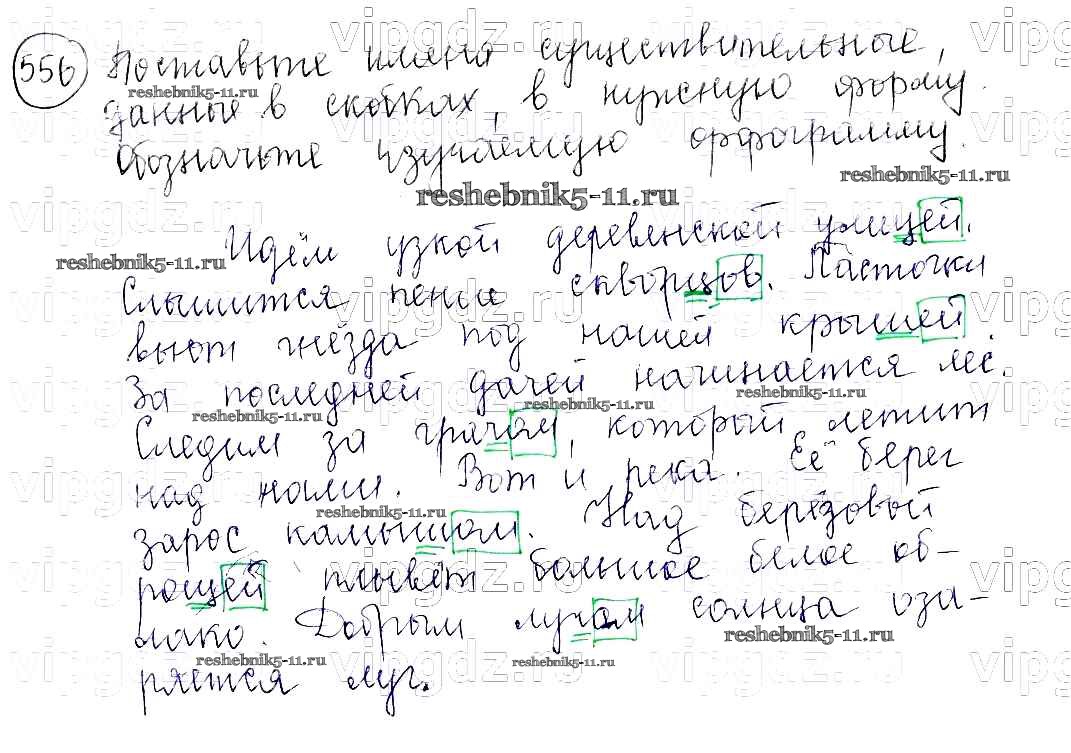 556 Поставьте имена существительные,
данные в скобках, в нужную форму.
Обозначьте изучаемую орфограмму.
Идём узкой деревенской улицей.
Слышится пенье скворцов. Ласточки
вьют гнёзда под нашей крышей.
За последней дачей начинается лес.
Следим за грачом, который летит
над нами. Вот и река. Её берег
зарос камышом. Над берёзовой
рощей плывёт большое белое об-
лако. Добрым лучом солнца оза-
ряется луг.
vipgdz.ru
reshebnik5-11.ru